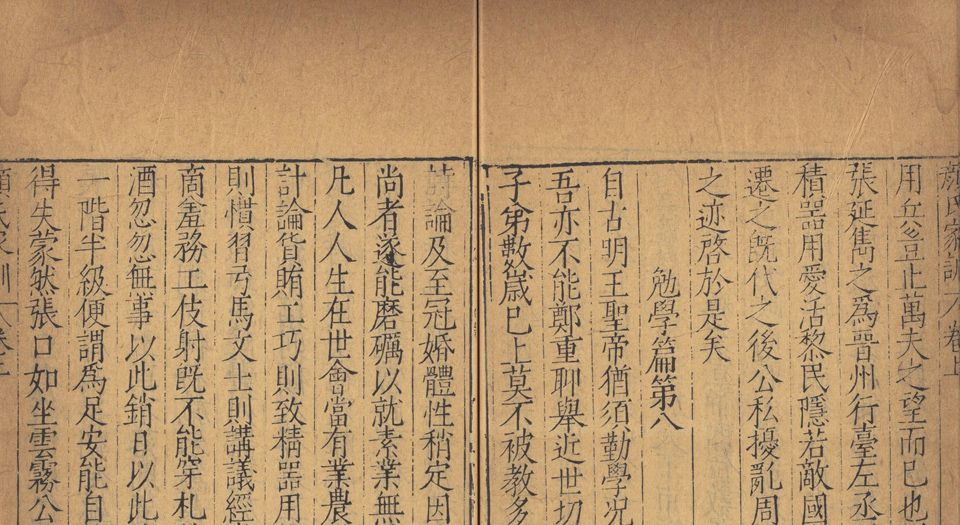 顏氏家訓 卷上
用兵豈止萬夫之望而已也
張延雋之為晉州行臺左丞
積器用愛活黎民隱若敵國
遷之既代之後公私擾亂周
之迹啓於是矣
勉學篇第八
自古明王聖帝猶須勤學况
吾亦不能鄭重聊舉近世切
子弟數嵗已上莫不被教多
詩論及至冠婚體性稍定因
尚者遂能磨礪以就素業無
凡人人生在世會當有業農
計論貨賄工巧則致精器用
則慣習弓馬文士則講議經
商羞務工伎射既不能穿札
酒忽忽無事以此銷日以此
一階半級便謂為足安能自
得失蒙然張口如坐雲霧公
顏氏家訓